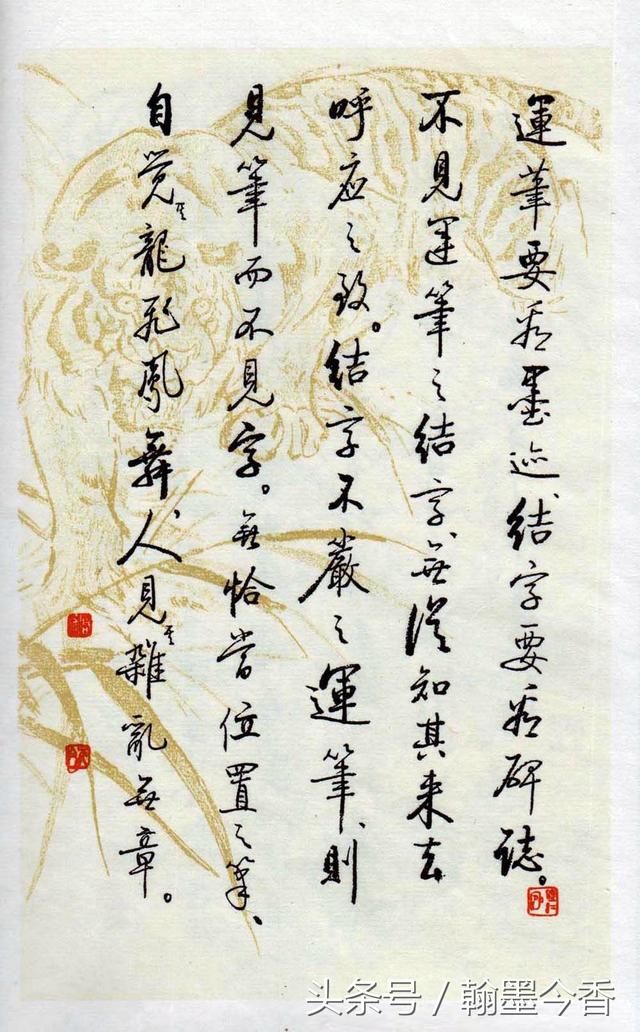 運筆要看墨迹、结字要看碑誌。
不見運筆之结字、無從知其来去
呼应之致。结字不嚴之運筆、則
見筆而不見字。無恰当位置之筆、
自覺其龍飛鳳舞、人見其雜亂無章。
头条号 / 翰墨今香